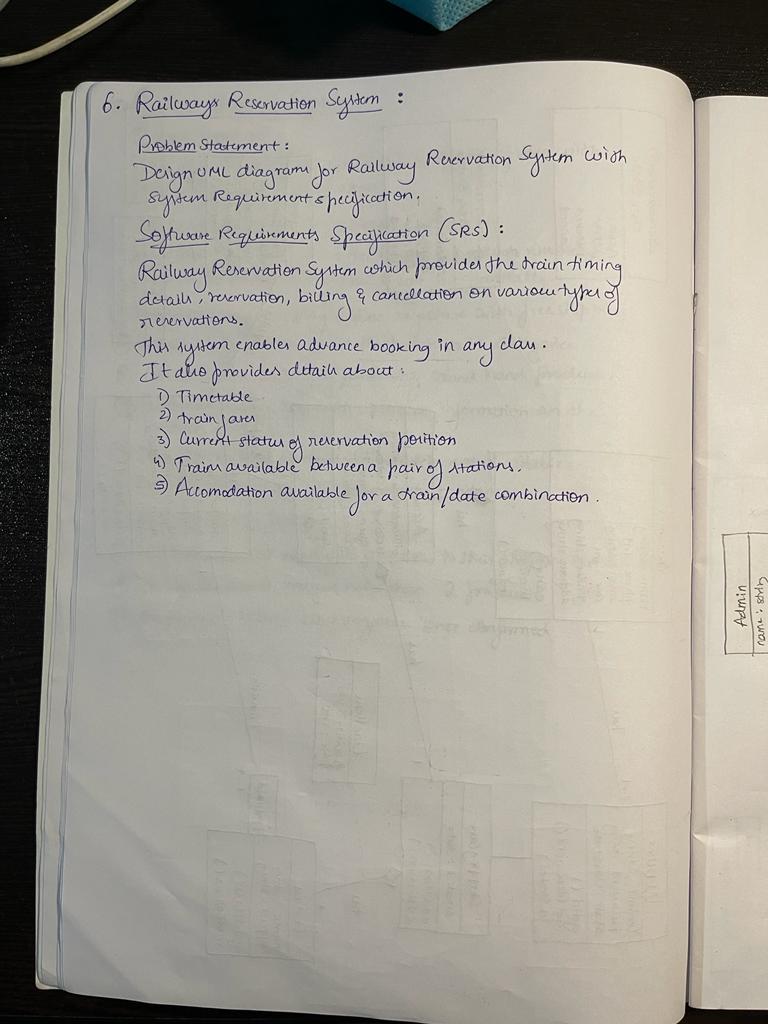 6. Railways Reservation System :
Problem Statement :
Design UML diagrams for Railway Reservation System with
System Requirement specification.
Software Requirements Specification (SRS) :
Railway Reservation System which provides the train timing
details, reservation, billing & cancellation on various types of
reservations.
This system enables advance booking in any class.
It also provides details about :
1) Timetable
2) train fares
3) Current status of reservation position
4) Trains available between a pair of stations.
5) Accomodation available for a train/date combination.
Admin
name : string